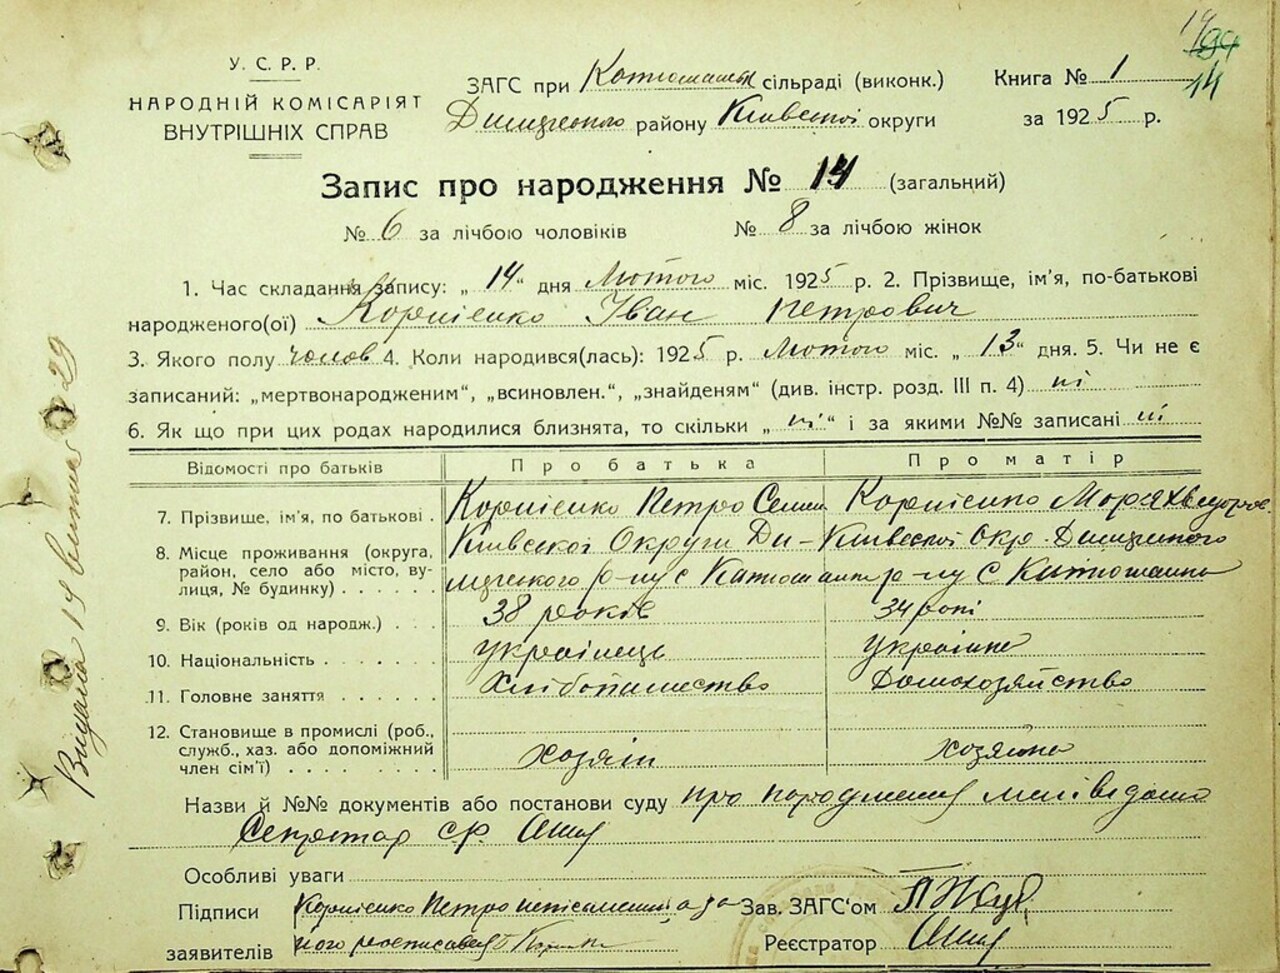 14
94
14
У. С. Р. Р.
НАРОДНІЙ КОМІСАРІЯТ
ВНУТРІШНІХ СПРАВ
ЗАГС при Катюжанськ сільраді (виконк.)
Димерського району Київської округи
Книга № 1
за 1925 р.
Запис про народження № 14 (загальний)
№ 6 за лічбою чоловіків № 8 за лічбою жінок
1. Час складання запису: „ 14 “ дня Лютого міс. 1925 р. 2. Прізвище, ім’я, по-батькові
народженого(ої) Корнієнко Іван Петрович
3. Якого полу чолов 4. Коли народився(лась): 1925 р. Лютого міс. „ 13 “ дня. 5. Чи не є
записаний: „мертвонародженим“, „всиновлен.“, „знайденям“ (див. інстр. розд. III п. 4) ні
6. Як що при цих родах народилися близнята, то скільки „ ні “ і за якими №№ записані ні
Відомості про батьків Про батька Про матір
7. Прізвище, ім’я, по батькові . Корнієнко Петро Семен Корнієнко
8. Місце проживання (округа, район, село або місто, вулиця, № будинку) . . . . . .
Київської Округи Ди-
мерського р-ну с Катюжанк
Київської Окр. Димерського
р-ну С Катюжанка
9. Вік (років од народж.) . . . 38 років 34 рокі
10. Національність . . . . . . . Українець Українка
11. Головне заняття . . . . . . Хлібопашество Домохозяйство
12. Становище в промислі (роб., служб., хаз. або допоміжний член сім’ї) . . . . . . . . .
хозяін хозяйка
Назви й №№ документів або постанови суду про народження
Секретар
Особливі уваги
Підписи Корнієнко Петро неписьменний а за Зав. ЗАГС’ом
заявителів його росписався Реєстратор
Видана 14 29